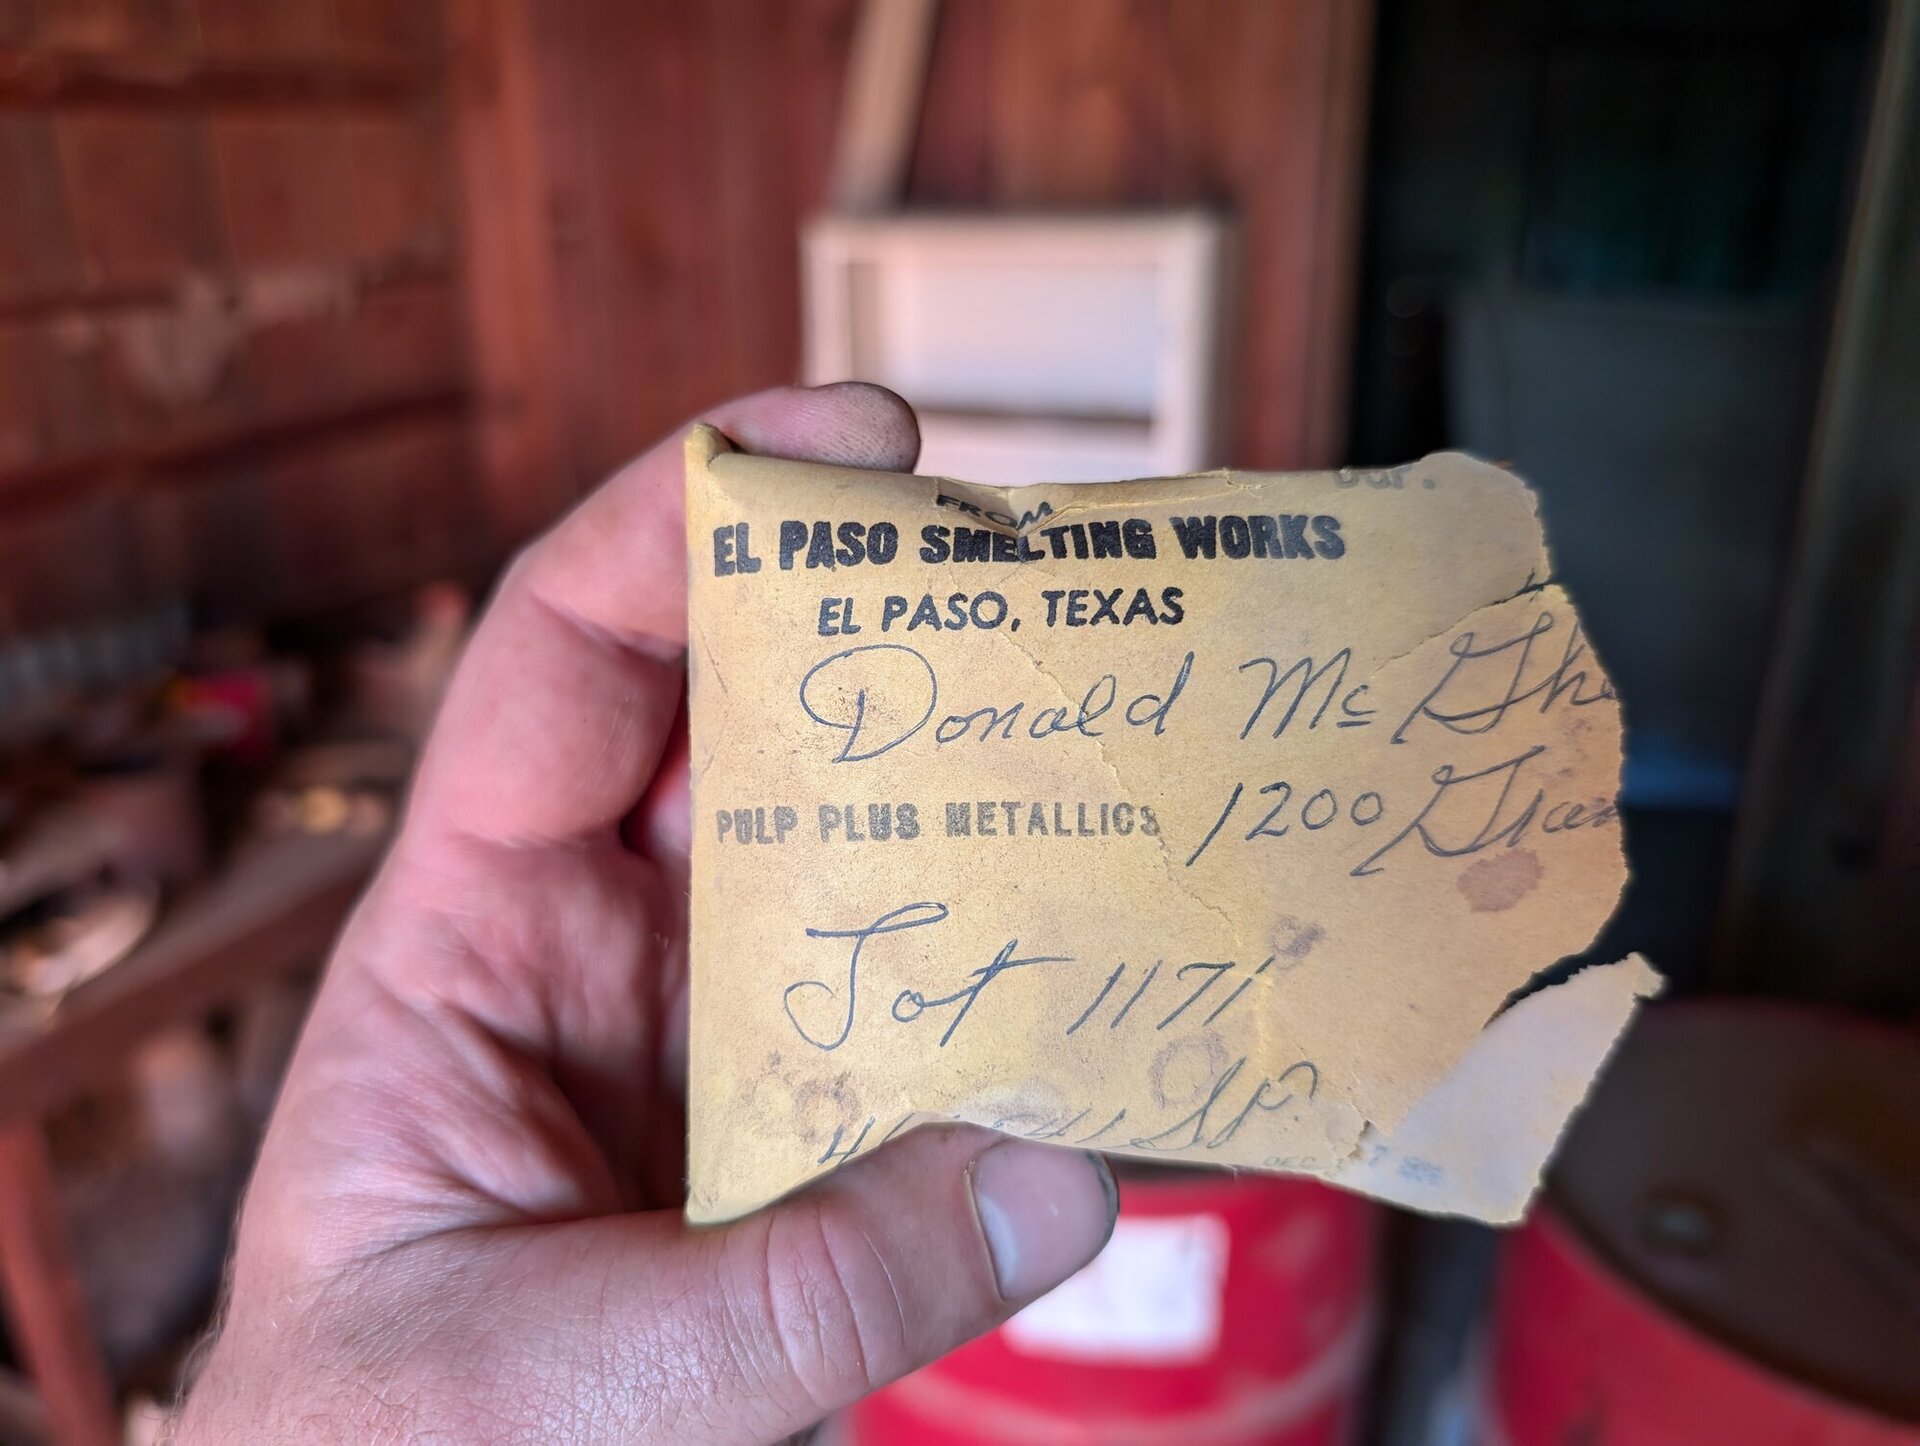 FROM
EL PASO SMELTING WORKS
EL PASO, TEXAS
Donald Mc Ghe
PULP PLUS METALLICS 1200 Gran
Lot 1171
DEC